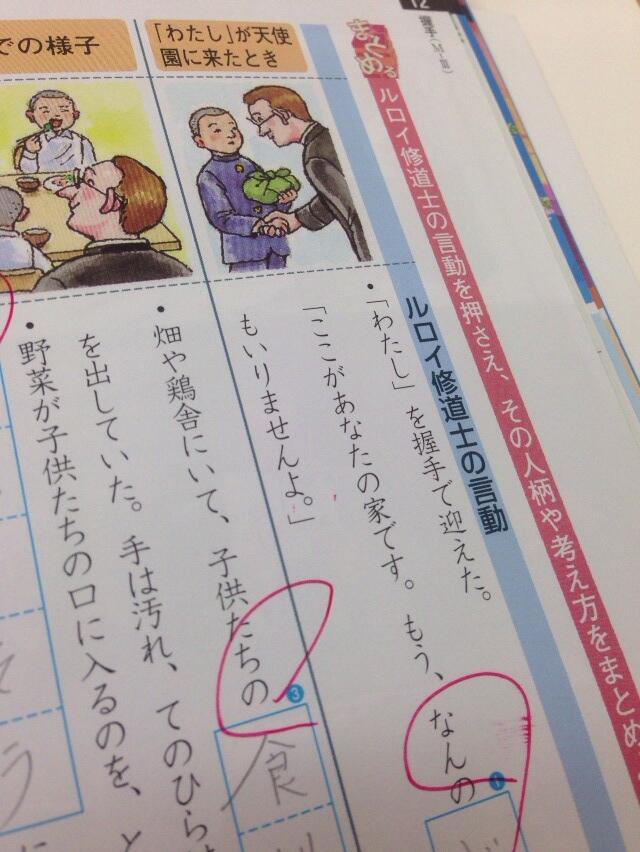 12 握手(M-Ⅲ)
まとめる
ルロイ修道士の言動を押さえ、その人柄や考え方をまとめ
ルロイ修道士の言動
「わたし」が天使
園に来たとき
・「わたし」を握手で迎えた。
「ここがあなたの家です。もう、なんの
❶
もいりませんよ。」
での様子
・畑や鶏舎にいて、子供たちの
❸
食
を出していた。手は汚れ、てのひらは
・野菜が子供たちの口に入るのを、と
う